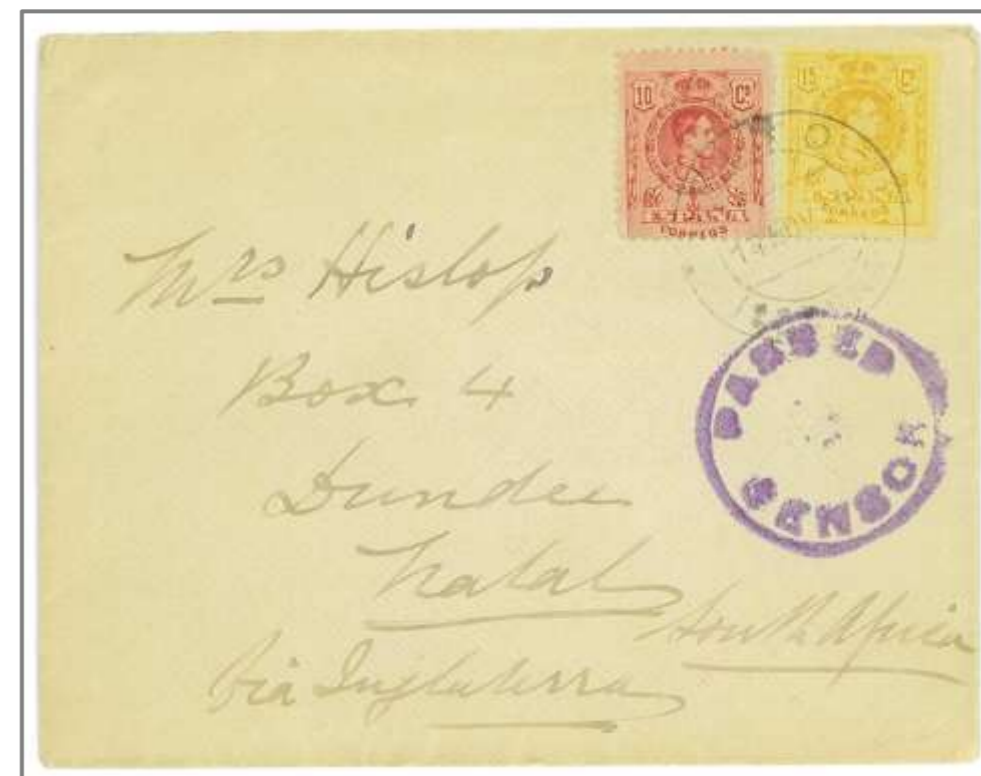 10 Cs
15 Cs
ESPAÑA
CORREOS
ESPAÑA
CORREOS
PASSED
CENSOR
Mrs Hislop
Box 4
Dundee
Natal
South Africa
Via Inglaterra